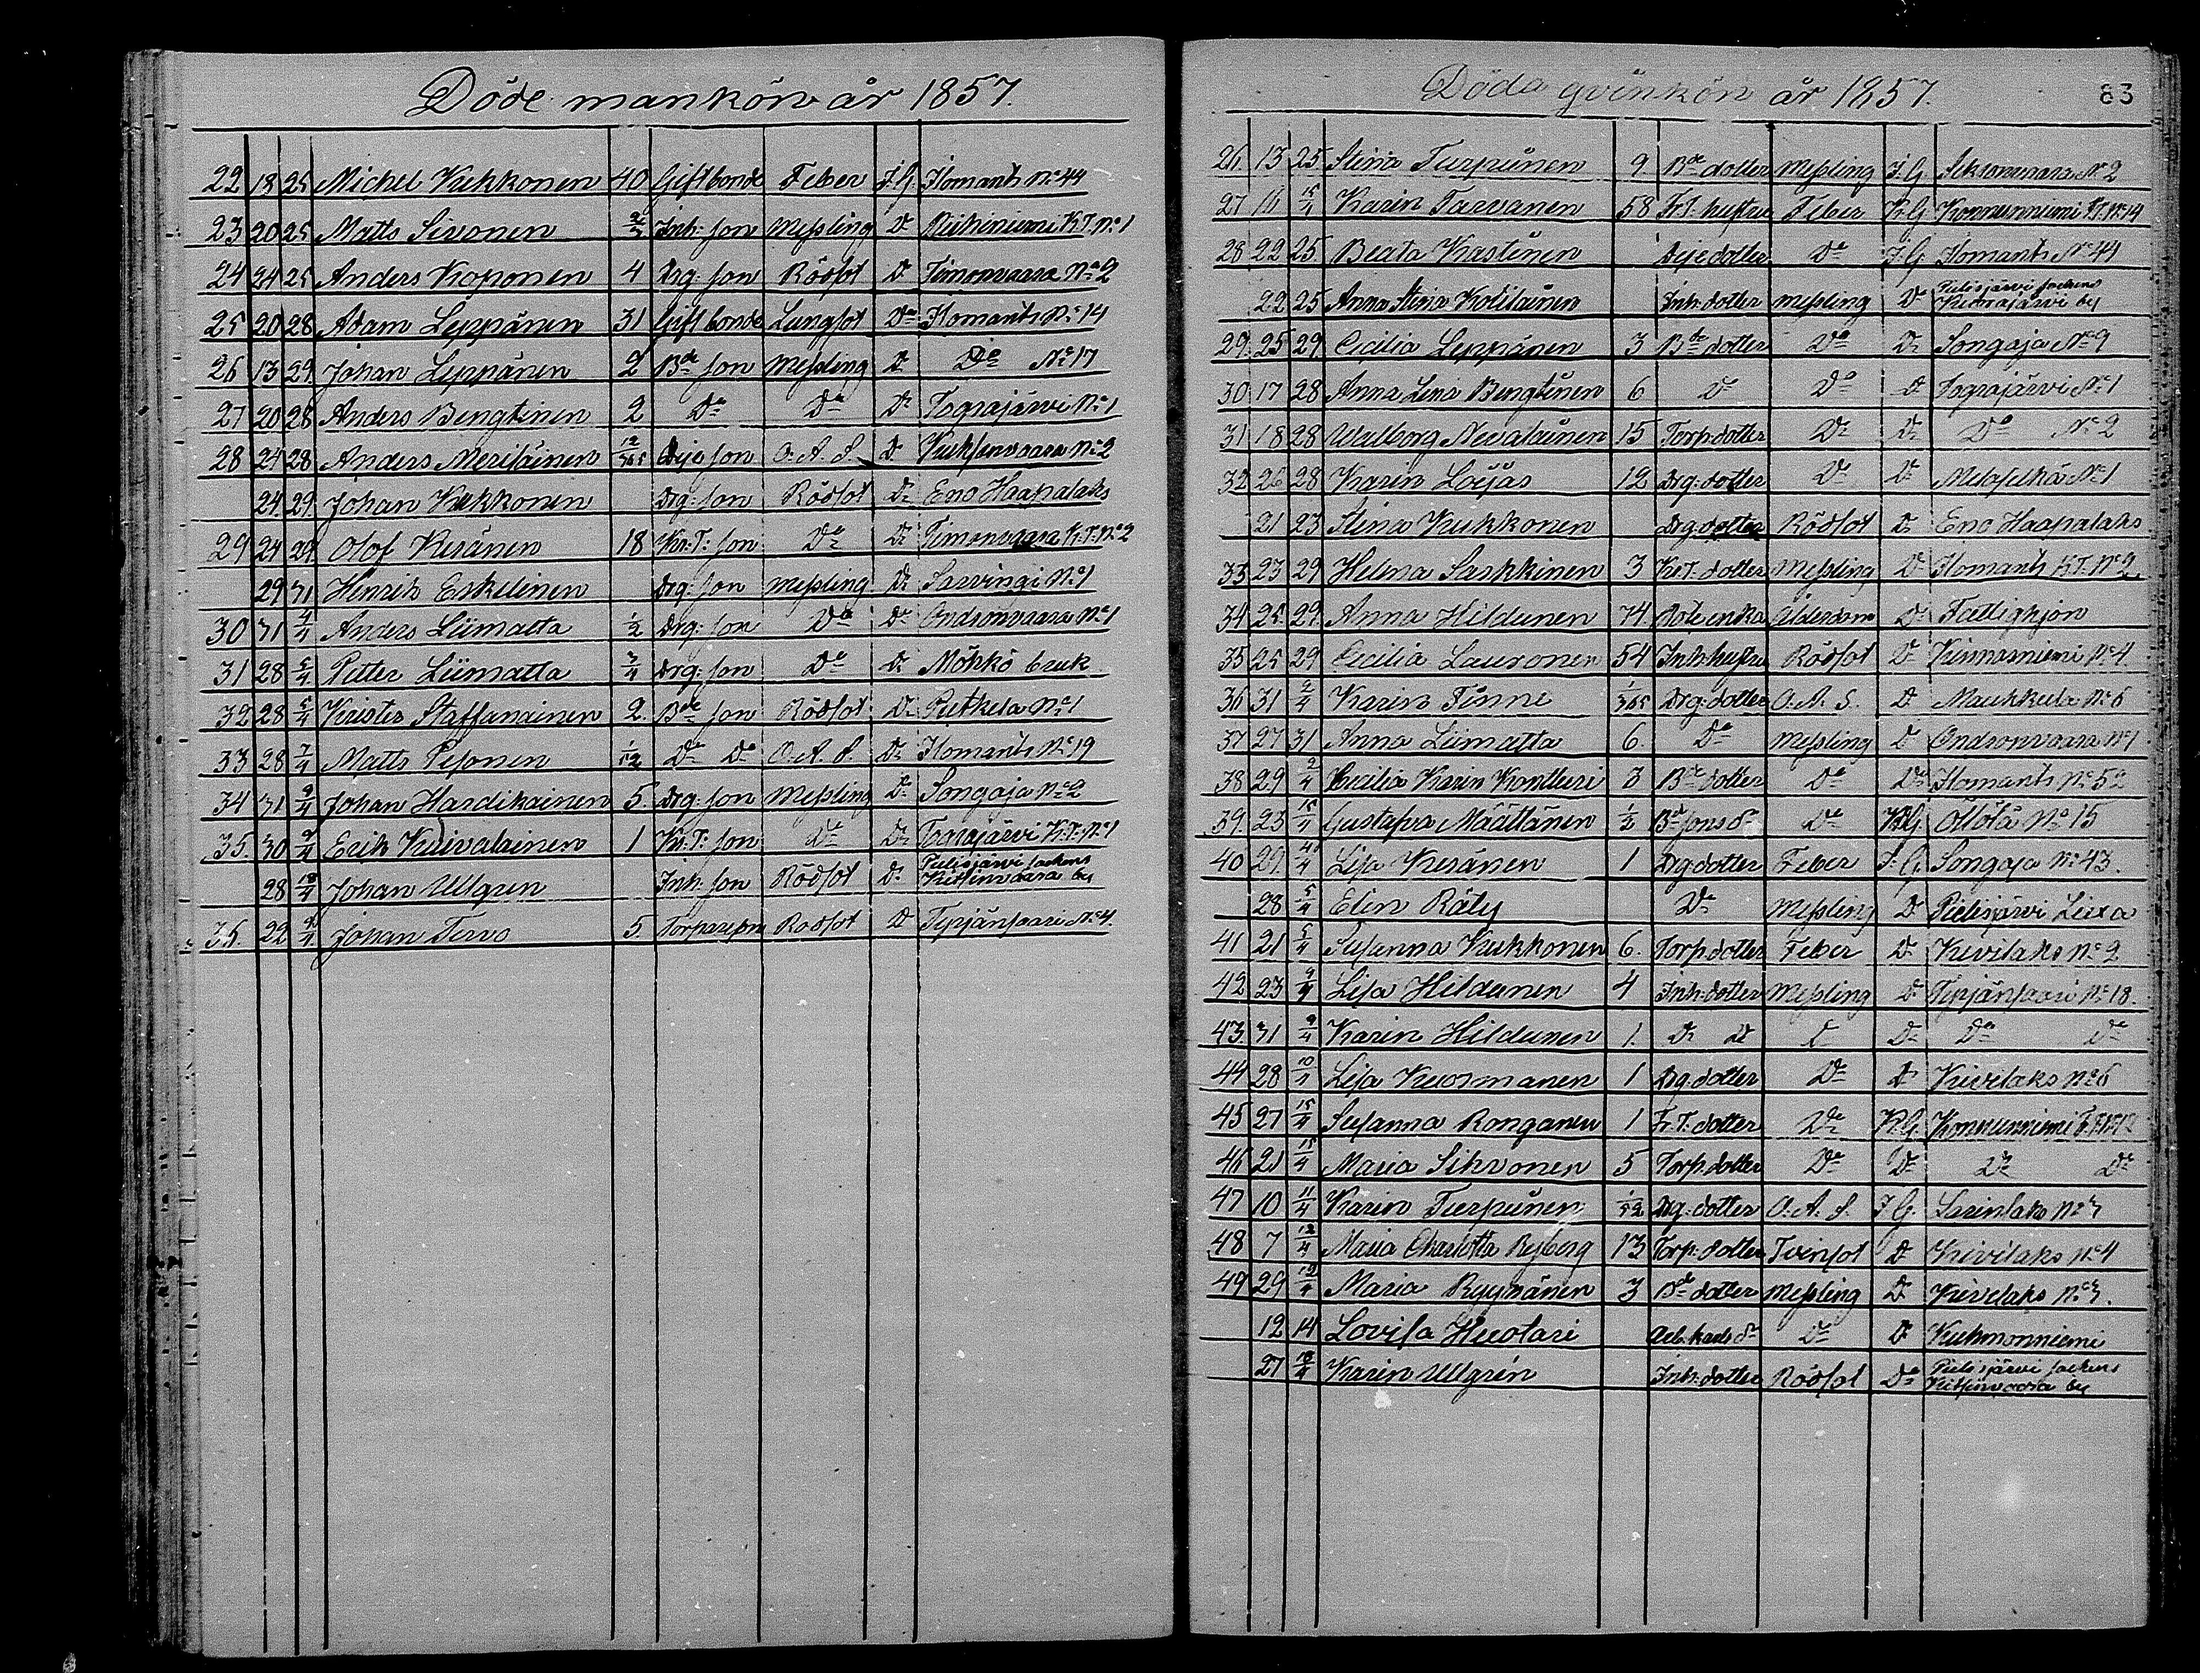 Döde mankön år 1857.
22 18 25 Michel Kukkonen 40 Gift bonde Feber I.G. Ilomants No 44
23 20 25 Matts Sivonen Inh: son Messling Do K.T. No 1
24 24 25 Anders Koponen 4 Drg: son Rödsot Do Timonvaara No 2
25 20 28 Adam Leppänen 31 Gift bonde Lungsot Do Ilomants No 14
26 13 29 Johan Leppänen 2 Bde son Messling Do Do No 17
27 20 28 Anders Bengtinen 2 Do Do Do Tograjärvi No 1
28 24 28 Anders Meriläinen 12/365 Deje son O.A.S. Do Kuksenvaara No 2
24 29 Johan Kukkonen Drg: son Rödsot Do Eno Haapalaks
29 24 29 Olof Kesänen 18 Kr: T: son Do Do Timonvaara K.T. No 2
29 31 Henrik Eskelinen Drg: son Messling Do Sarvingi No 1
30 31 4/4 Anders Liimatta 1/2 Drg: son Do Do Ondronvaara No 1
31 28 5/4 Petter Liimatta 3/4 Drg: son Do Do Möhkö bruk
32 28 5/4 Krister Staffanainen 2 Bde son Rödsot Do Putkela No 1
33 28 7/4 Matts Pesonen 1/12 Do Do O.A.S. Do Ilomants No 19
34 31 9/4 Johan Hardikainen 5 Drg: son Messling Do Songaja No 2
35. 30 9/4 Erik Kuivalainen 1 Kr: T: son Do Do Tograjärvi K.T. No 1
28 18/4 Johan Ullgren Inh: son Rödsot Do Pielisjärvi sockens
Kitsinvaara by
36. 22 9/4 Johan Tervo 5. Torpareson Rödsot Do No 4.
Döda qvinkön år 1857.
83
26. 13 25 Stina Turpuinen 9 Bde dotter Messling I.G. No 2
27 11 15/4 Karin Tarvanen 58 Fr. T. hustru Feber K.G. Konnunniemi No 14
28 22 25 Beata Kastinen Deje dotter Do I.G. Ilomants No 41
22 25 Anna Stina Kotilainen Inh: dotter Messling Do Pielisjärvi sockens
by
29. 25 29 Cecilia Leppänen 3 Bde dotter Do Do Songaja No 9
30 17 28 Anna Lena Bengtinen 6 Do Do Do Tograjärvi No 1
31 18 28 Walborg Nevalainen 15 Torp. dotter Do Do Do No 2
32 26 28 Karin Löjjäs 12 Drg: dotter Do Do Melaselkä No 1
21 23 Stina Kukkonen Drg: dotter Rödsot Do Eno Haapalaks
33 23 29 Helena Sarkkinen 3 Kr. T. dotter Messling Do Ilomants K.T. No 2
34 25 29 Anna Hildunen 74 Rote enka Ålderdom Do Fattighjon
35 25 29 Cecilia Lauronen 54 Inh: hustru Rödsot Do Kinnasniemi No 4
36 31 2/4 Karin Tinne 1/365 Drg: dotter O.A.S. Do Maukkula No 6
37 27 31 Anna Liimatta 6. Do Messling Do Ondronvaara No 1
38 29 2/4 Cecilia Karin Kontturi 3 Bde dotter Do Do Ilomants No 52
39. 23 15/4 Gustafva Määttänen 1/2 Bde sons dr Do K.G. Öllölä No 15
40 29. 4/4 Lisa Kesänen 1 Drg. dotter Feber I.G. Songaja No 43.
28 5/4 Elin Räty Do Messling Do Pielisjärvi Lixa
41 21 5/4 Susanna Kukkonen 6. Torp. dotter Feber Do Kivilaks No 2
42 23 9/4 Lisa Hildunen 4 Inh: dotter Messling Do No 18.
43. 31 9/4 Karin Hildunen 1. Do Do Do Do Do Do
44 28 10/4 Lisa Kuosmanen 1 Drg: dotter Do Do Kivilaks No 6
45 27 15/4 Susanna Ronganen 1 Fr. T. dotter Do K.G. Konnunniemi
46 21 15/4 Maria Sihvonen 5 Torp. dotter Do Do Do Do
47 10 11/4 Karin Turpuinen 1/52 Drg: dotter O.A.S. I.G. No 3
48 7 12/4 Maria Charlotta Ryberg 13 Torp: dotter Tvinsot Do Kivilaks No 4
49 29 12/4 Maria Ryynänen 3 Bde dotter Messling Do Kivilaks No 3.
12 14 Lovisa Huotari Arb. karls dr Do Do Kuhmonniemi
27 18/4 Karin Ullgren Inh: dotter Rödsot Do Pielisjärvi sockens
Kitsinvaara by